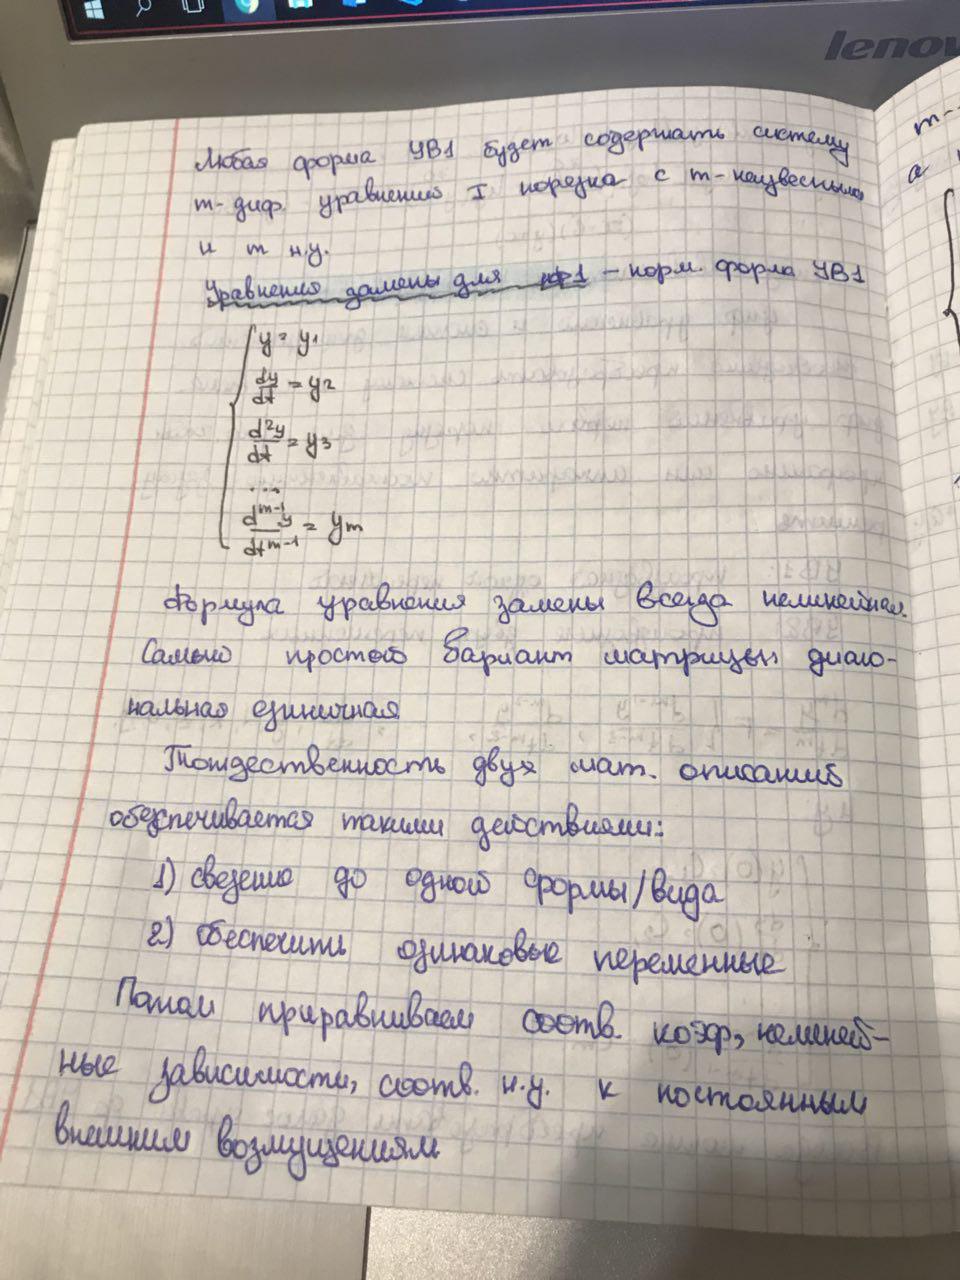 lenov
Любая форма УВ1 будет содержать систему
m-диф. уравнений I порядка с m-неизвесными
и m н.у.
Уравнения замены для нф1 – норм. форма УВ1
y = y1
dy/dt = y2
d²y/dt = y3
...
d^m-1 y/dt^m-1 = ym
Формула уравнения замены всегда нелинейная.
Самый простой вариант матрицы диаго-
нальная единичная
Тождественность двух мат. описаний
обеспечивается такими действиями:
1) сведение до одной формы/вида
2) обеспечить одинаковые переменные
Потом приравниваем соотв. коэф, нелиней-
ные зависимости, соотв. н.у. к постоянным
внешним возмущениям
m-
а